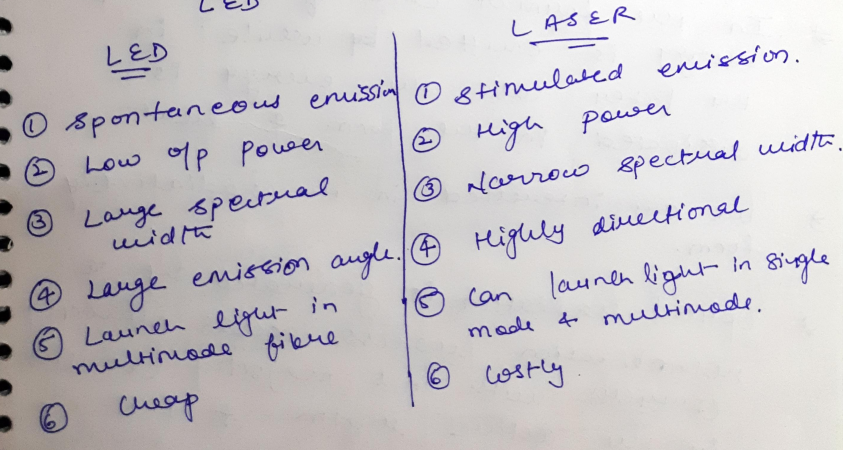 LED
LED
① Spontaneous emission
② Low o/p power
③ Large spectral
width
④ Large emission angle.
⑤ Launch light in
multimode fibre
⑥ Cheap
LASER
① Stimulated emission.
② High power
③ Narrow spectral width.
④ Highly directional
⑤ Can launch light in single
mode & multimode.
⑥ Costly.